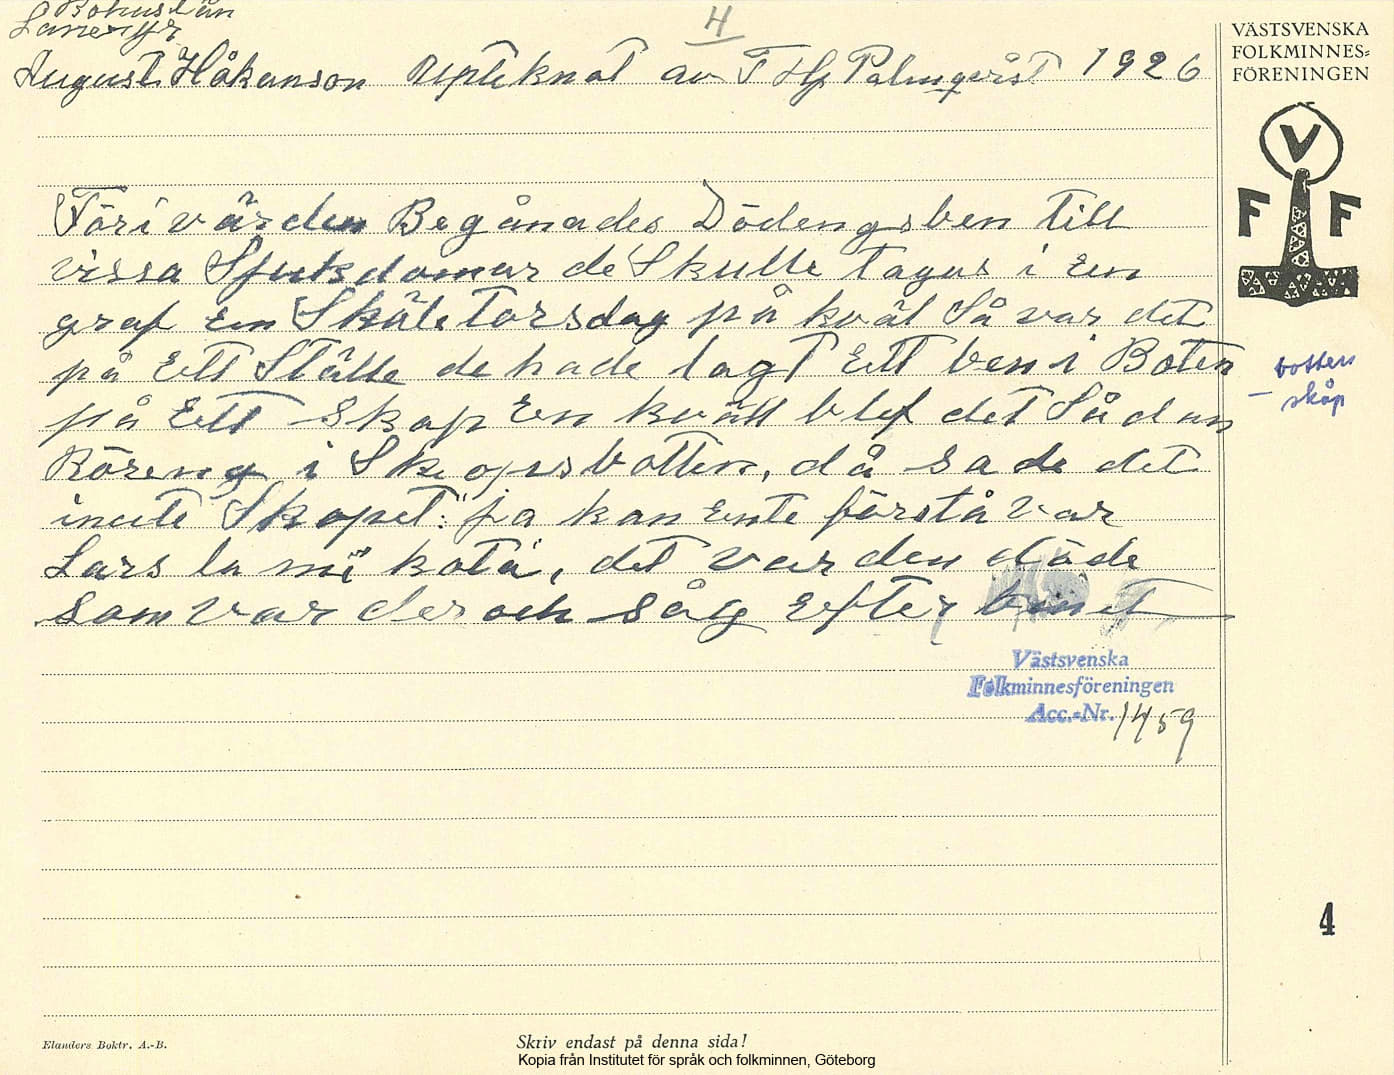 Bohuslän
Lanenyr
4
August Håkanson Upteknat av T Hj Palmqvist 1926
VÄSTSVENSKA
FOLKMINNES-
FÖRENINGEN
V
F F
Föri värden Begånades Dödengsben till
vissa Sjukdomar de Skulle tagas i en
graf En Skäletorsdag på kväl Så var det
på Ett Ställe de hade lagt Ett ben i Boten
på Ett skap En kväll blef det Sådan
Röreng i Skopsbotten, då sade det
inute Skapet: "ja kan Ente förstå var
Lars la mi kota", det var den döde
som var der och såg Efter benet
botten
– skåp
Västsvenska
Folkminnesföreningen
Acc.-Nr. 1459
4
Elanders Boktr. A.-B.
Skriv endast på denna sida!
Kopia från Institutet för språk och folkminnen, Göteborg